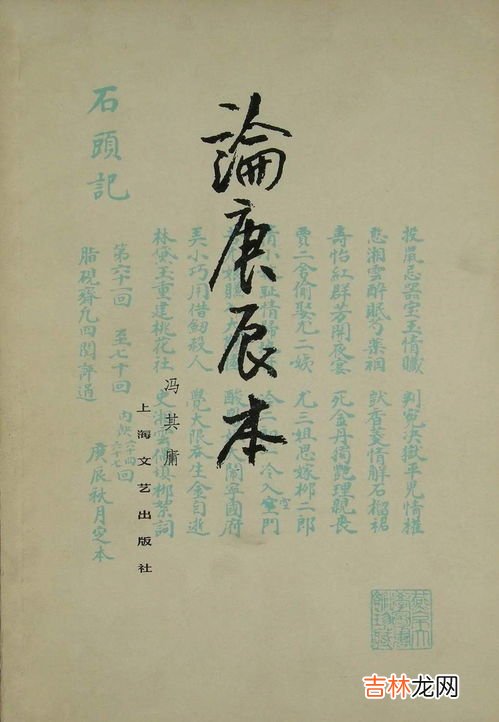 論庚辰本
冯其庸
上海文艺出版社
投鼠忌器宝玉情贓 判冤决獄平兒情權
憨湘雲醉眠芍藥裀 獃香菱情解石榴裙
壽怡紅群芳開夜宴 死金丹獨艷理親喪
賈二舍偷娶尤二姨 尤三姐思嫁柳二郎
情小妹恥情 冷入空門
鬧寧國府
弄小巧用借劍殺人 覺大限吞生金自逝
林黛玉重建桃花社 史湘雲偶填柳絮詞
第六十一回 至七十回
脂硯齋凡四閱評過 庚辰秋月定本
石頭記
吉林龙网